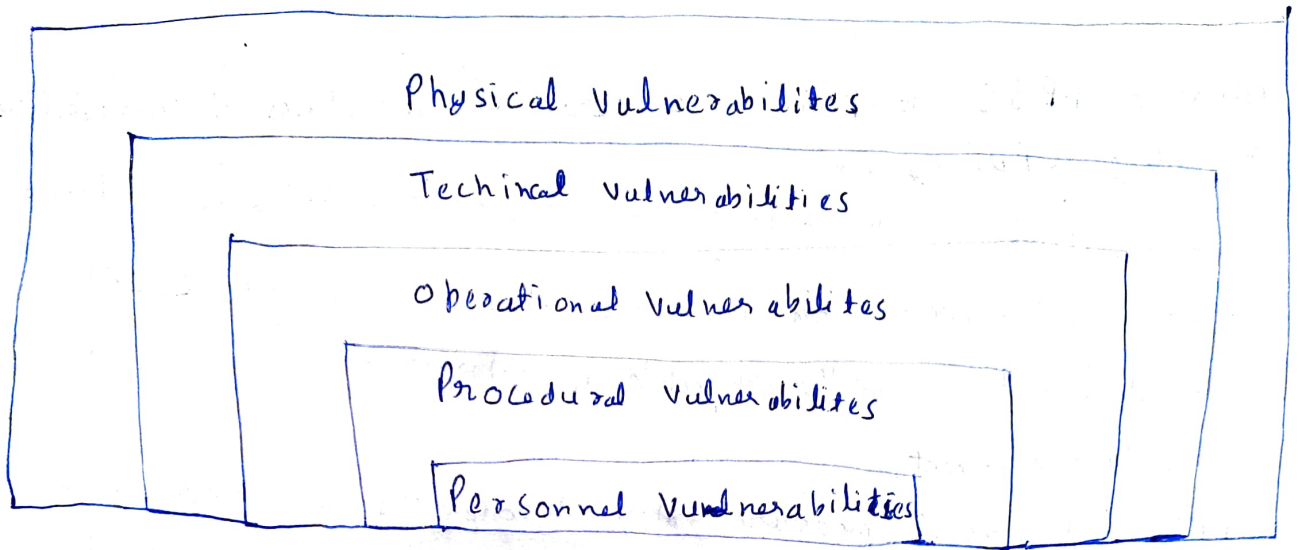 Physical Vulnerabilites
Techincal Vulnerabilities
Operational Vulnerabilites
Procedural Vulnerabilites
Personnel Vulnerabilities